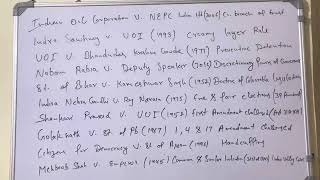 Indian Oil Corporation V. NEPC India Ltd (2006) Cri. breach of trust
Indra Sawhney V. UOI (1993) Creamy layer Rule
UOI V. Bhanudas Krishna Gawde (1977) Preventive Detention
Nabam Rebia V. Deputy Speaker (2016) Discretionary Power of Governor
St. of Bihar V. Kameshwar Singh (1952) Doctrine of Colourable Legislation
Indra Nehru Gandhi V. Raj Narain (1975) Free & fair elections (39 Amend)
Shankari Prasad V. UOI (1951) first Amendment challenged
Golaknath V. St. of Pb (1967) 1, 4 & 17 Amendment Challenged
Citizens for Democracy V. St. of Assam (1996) Handcuffing
Mehboob Shah V. Emperor (1945) Common & Similar Intention